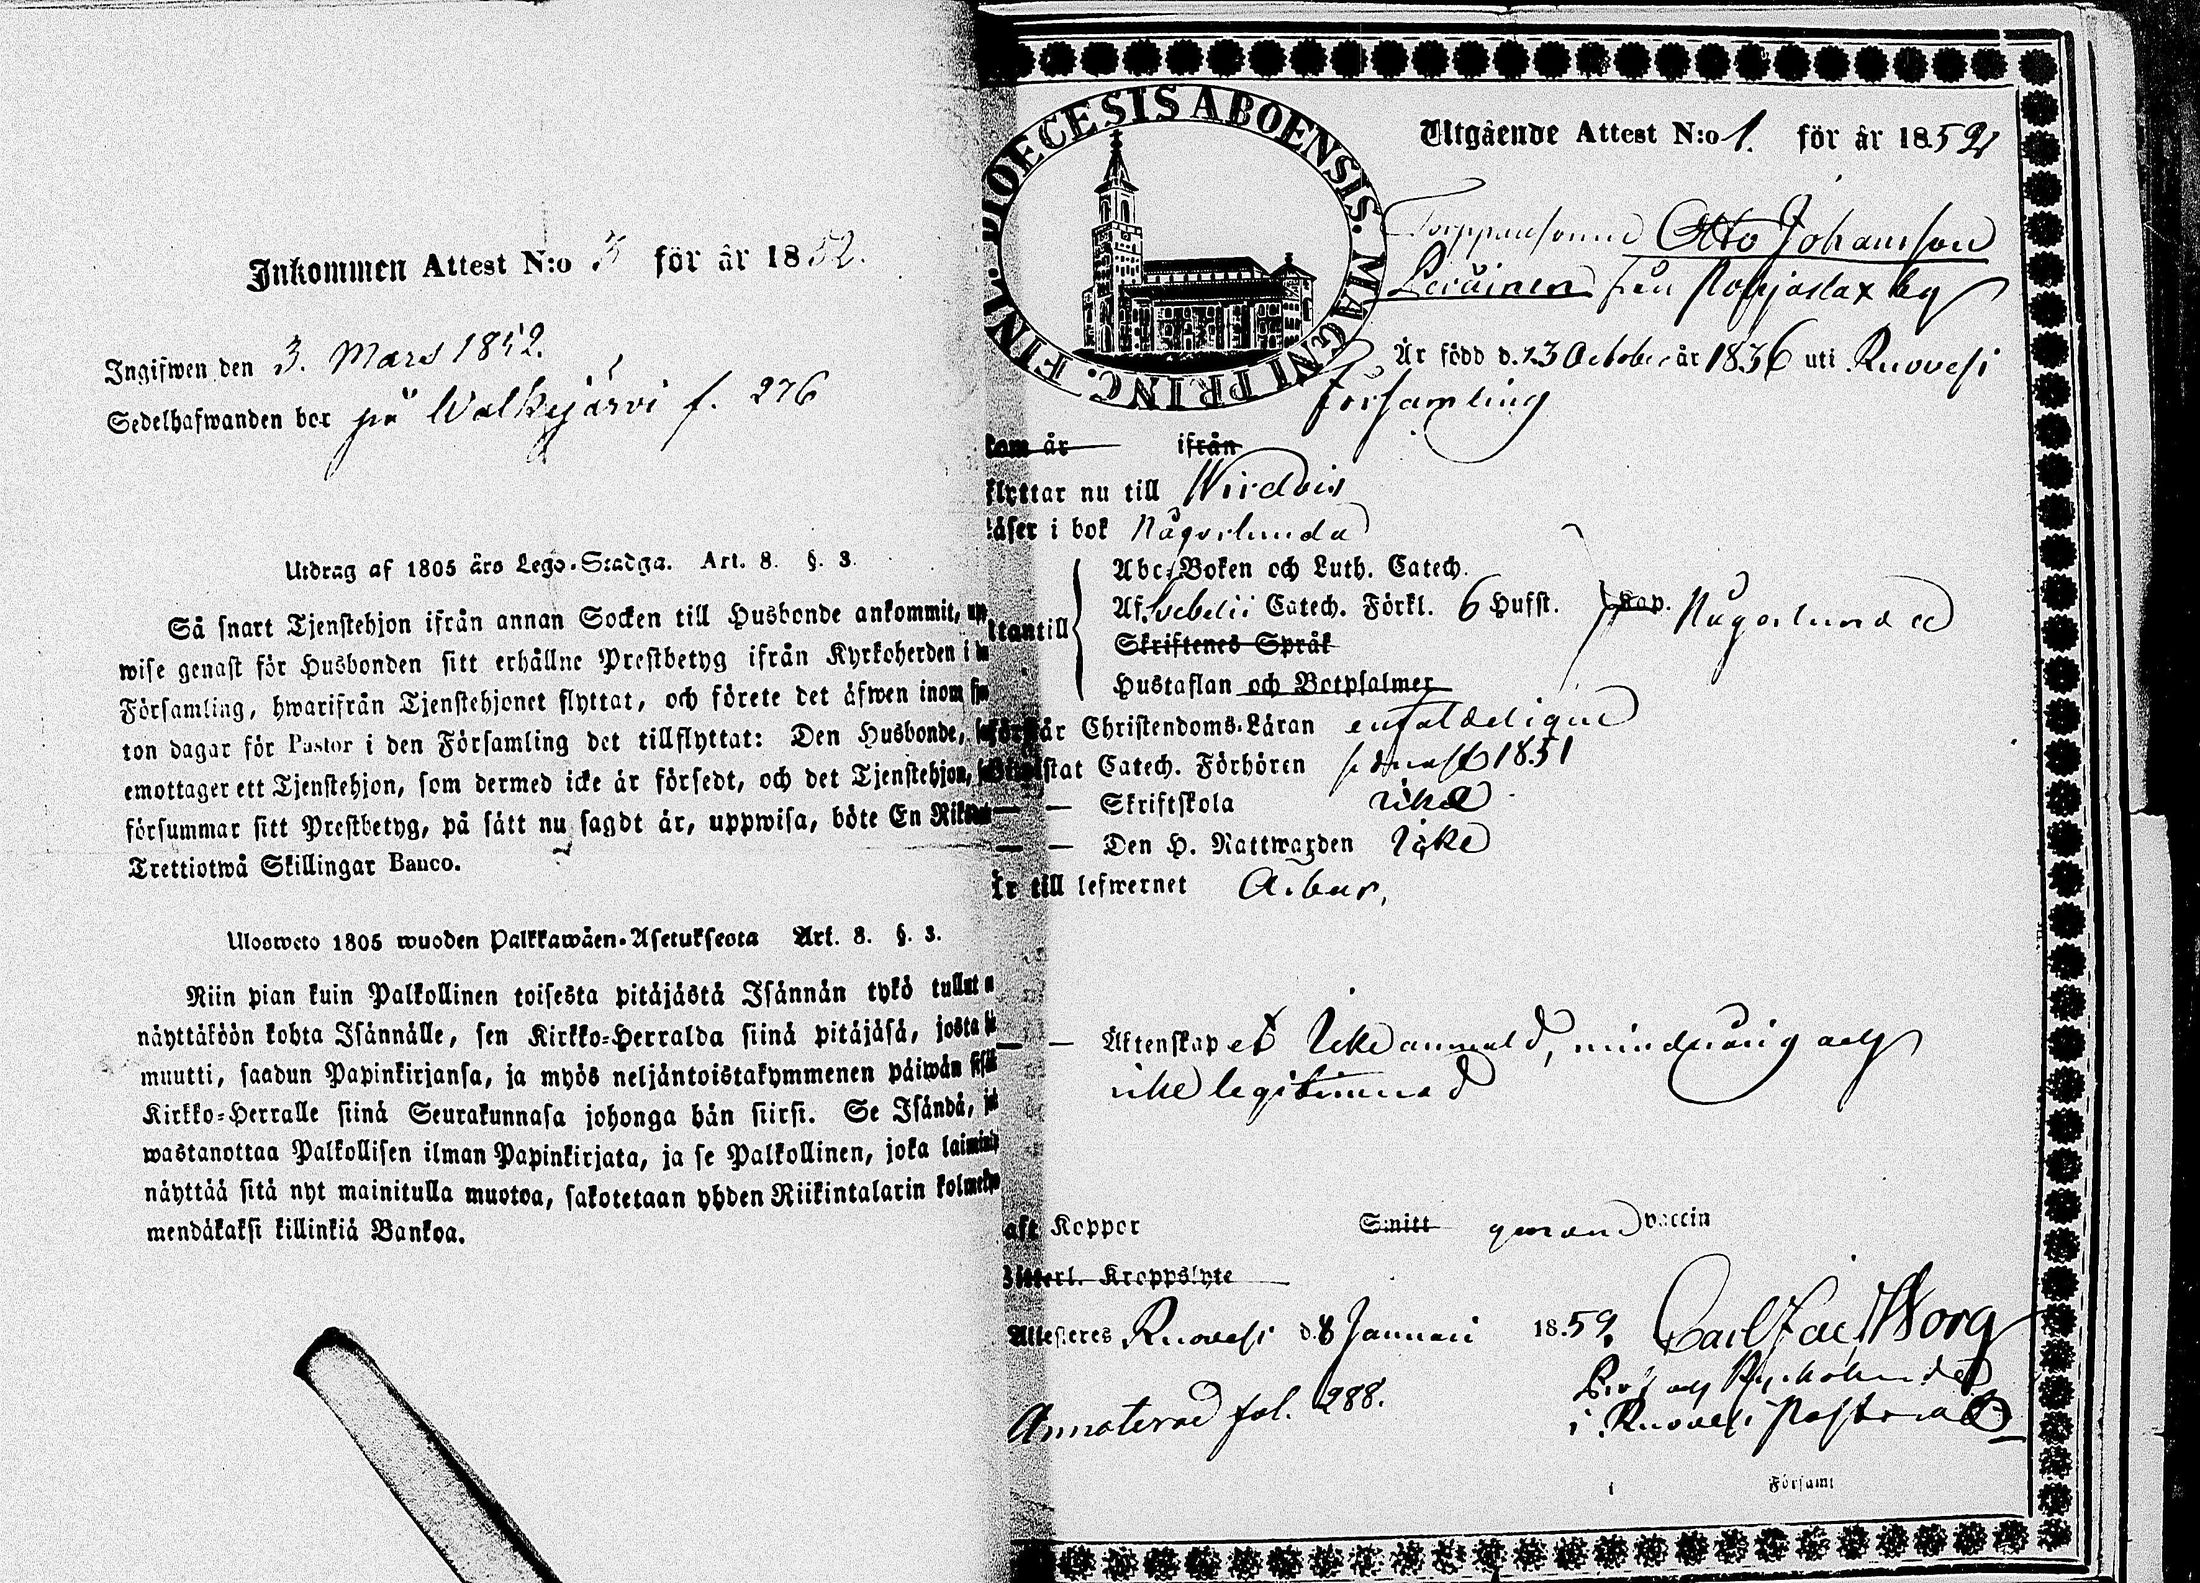 Inkommen Attest N:o 3 för år 1852.
Ingifwen den 3. Mars 1852.
Sedelhafwanden bor på Walkejärvi f. 276
Utdrag af 1805 års Lego-Stadga. Art. 8. §. 3.
Så snart Tjenstehjon ifrån annan Socken till Husbonde ankommit, upp
wise genast för Husbonden sitt erhållne Prestbetyg ifrån Kyrkoherden i
Församling, hwarifrån Tjenstehjonet flyttat, och förete det äfwen inom
ton dagar för Pastor i den Församling det tillflyttat: Den Husbonde,
emottager ett Tjenstehjon, som dermed icke är försedt, och det Tjenstehjon,
försummar sitt Prestbetyg, på sätt nu sagdt är, uppwisa, böte En Riksd
Trettiotwå Skillingar Banco.
Ulosweto 1805 wuoden Palkkawäen-Asetuksesta Art. 8. §. 3.
Niin pian kuin Palkollinen toisesta pitäjästä Isännän tykö tullut
näyttäköön kohta Isännälle, sen Kirkko-Herralda siinä pitäjäsä, josta
muutti, saadun Papinkirjansa, ja myös neljäntoistakymmenen päiwän
Kirkko-Herralle siinä Seurakunnasa johonga hän siirsi. Se Isändä,
wastanottaa Palkollisen ilman Papinkirjata, ja se Palkollinen, joka
näyttää sitä nyt mainitulla muotoa, sakotetaan yhden Riikintalarin
mendäkaksi killinkiä Bankoa.
DIOECESIS ABOENSIS. MAGNI PRINC. FINL.
Utgående Attest N:o 1. för år 1852
Torpparsonen Otto Johansson
Leväinen från Pohjaslax by
Är född d. 23 October år 1836 uti Ruovesi
församling
kom år ifrån
flyttar nu till Wirdois
läser i bok Någorlunda
Abc-Boken och Luth. Catech.
Af Svebelii Catech. Förkl. 6 Hufst. Kap. Någorlunda
utantill
Skriftenes Språk
Hustaflan och Botpsalmer
förstår Christendoms-Läran enfaldeligen
Catech. Förhören senast 1851
— — Skriftskola icke
— — Den H. Nattwarden icke
Är till lefwernet
— — Äktenskapet icke anmäld, minderårig och
icke legitimerad
haft Koppor Smitt genom vaccin
Ytterl. Kroppslyte
Attesteres Ruovesi d. 8 Januari 1852.
Annoterad fol. 288.
i Ruovesi Pastorat
i Församl